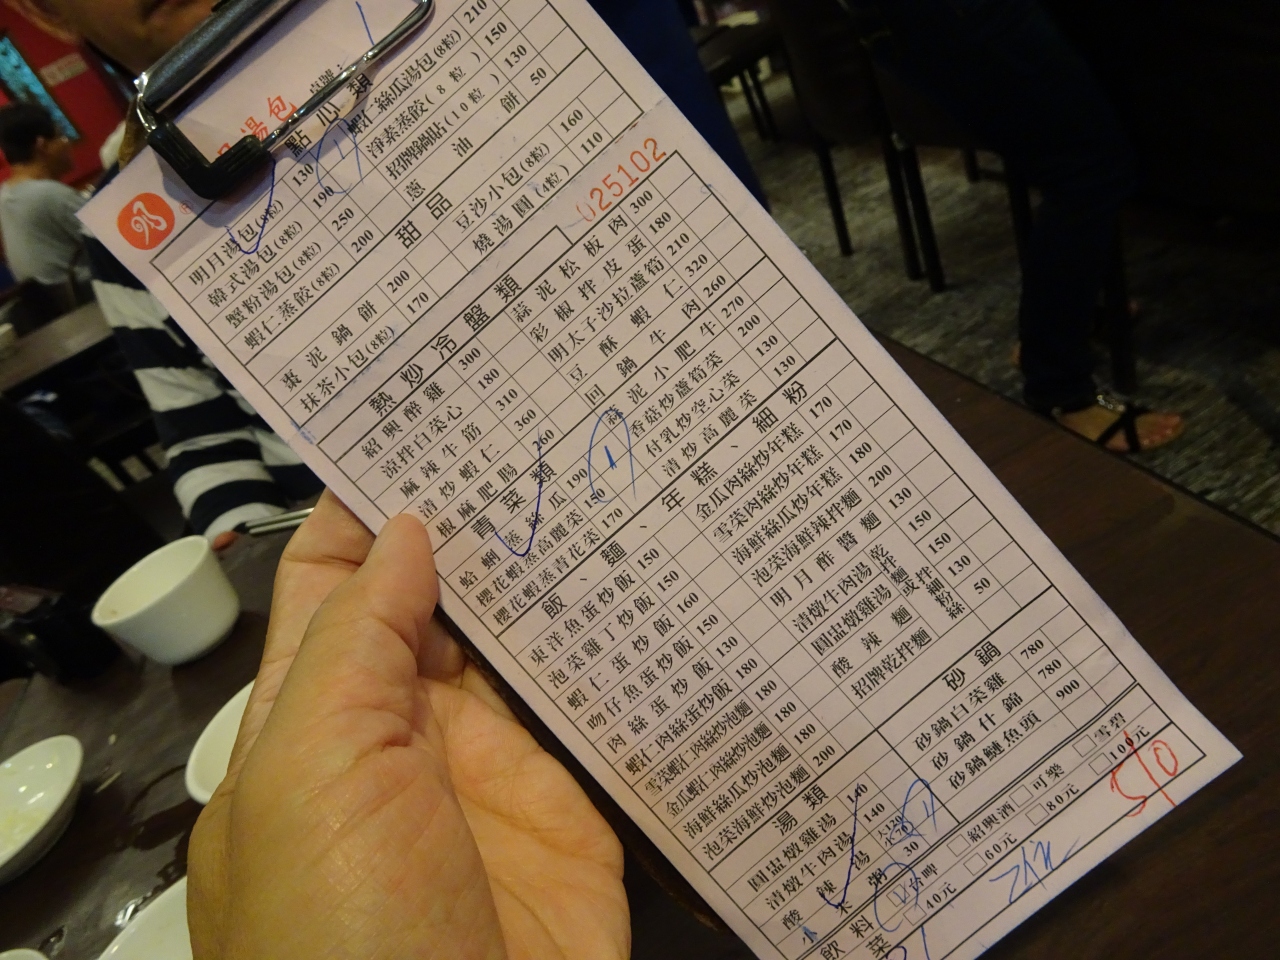 湯包
桌號：
點心類
明月湯包(8粒) 130
韓式湯包(8粒) 190
蟹粉湯包(8粒) 250
蝦仁蒸餃(8粒) 200
210
蝦仁絲瓜湯包(8粒) 150
淨素蒸餃(8粒) 130
招牌鍋貼(10粒) 50
蔥油餅
甜品
棗泥鍋餅 200
抹茶小包(8粒) 170
豆沙小包(8粒) 160
燒湯圓(4粒) 110
025102
熱炒冷盤類
紹興醉雞 300
涼拌白菜心 180
麻辣牛筋 310
清炒蝦仁 360
椒麻肥腸 260
蒜泥松板肉 300
彩椒拌皮蛋 180
明太子沙拉蘆筍 210
豆酥蝦仁 320
回鍋牛肉 260
泥小肥牛 270
青菜類
蛤蜊蒸絲瓜 190
櫻花蝦蒸高麗菜 150
櫻花蝦蒸青花菜 170
香菇炒蘆筍菜 200
付乳炒空心菜 130
清炒高麗菜 130
飯、麵、年糕、細粉
東洋魚蛋炒飯 150
泡菜雞丁炒飯 150
蝦仁蛋炒飯 160
吻仔魚蛋炒飯 150
肉絲蛋炒飯 130
蝦仁肉絲蛋炒飯 180
雪菜蝦仁肉絲炒泡麵 180
金瓜蝦仁肉絲炒泡麵 180
海鮮絲瓜炒泡麵 180
泡菜海鮮炒泡麵 200
金瓜肉絲炒年糕 170
雪菜肉絲炒年糕 170
海鮮絲瓜炒年糕 180
泡菜海鮮辣拌麵 200
明月酢醬麵 130
清燉牛肉湯麵 150
圓盅燉雞湯麵 150
乾拌或細粉絲
酸辣麵 130
招牌乾拌麵 50
湯類
圓盅燉雞湯 140
清燉牛肉湯 140
酸辣湯 大120 小70
小米粥 30
砂鍋
砂鍋白菜雞 780
砂鍋什錦 780
砂鍋鰱魚頭 900
飲料
□台啤 □紹興酒 □可樂 □雪碧
菜
□40元 □60元 □80元 □100元
510